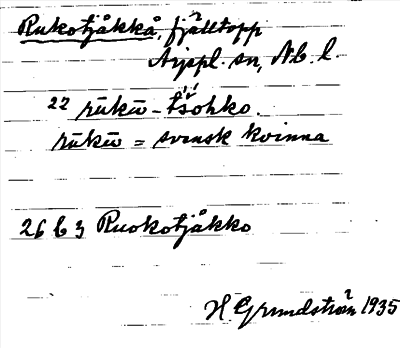 Rukotjåkkå, fjälltopp
Arjepl. sn, Nb. l.
22 rūkū - tšohko.
rūkū = svensk kvinna
26 b 3 Ruokotjåkko
H. Grundström 1935